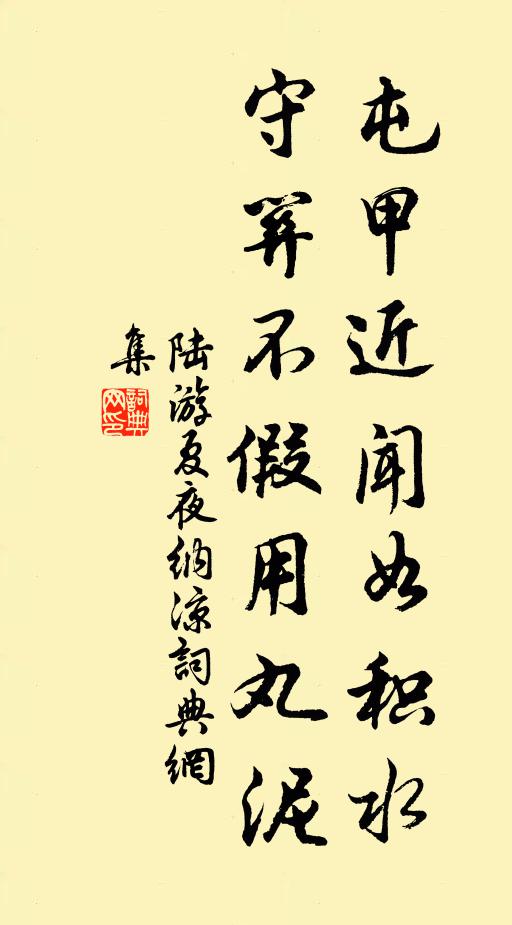 屯甲近闻如积水
守関不假用丸泥
陆游夏夜纳凉詞典網
集
詞典网印